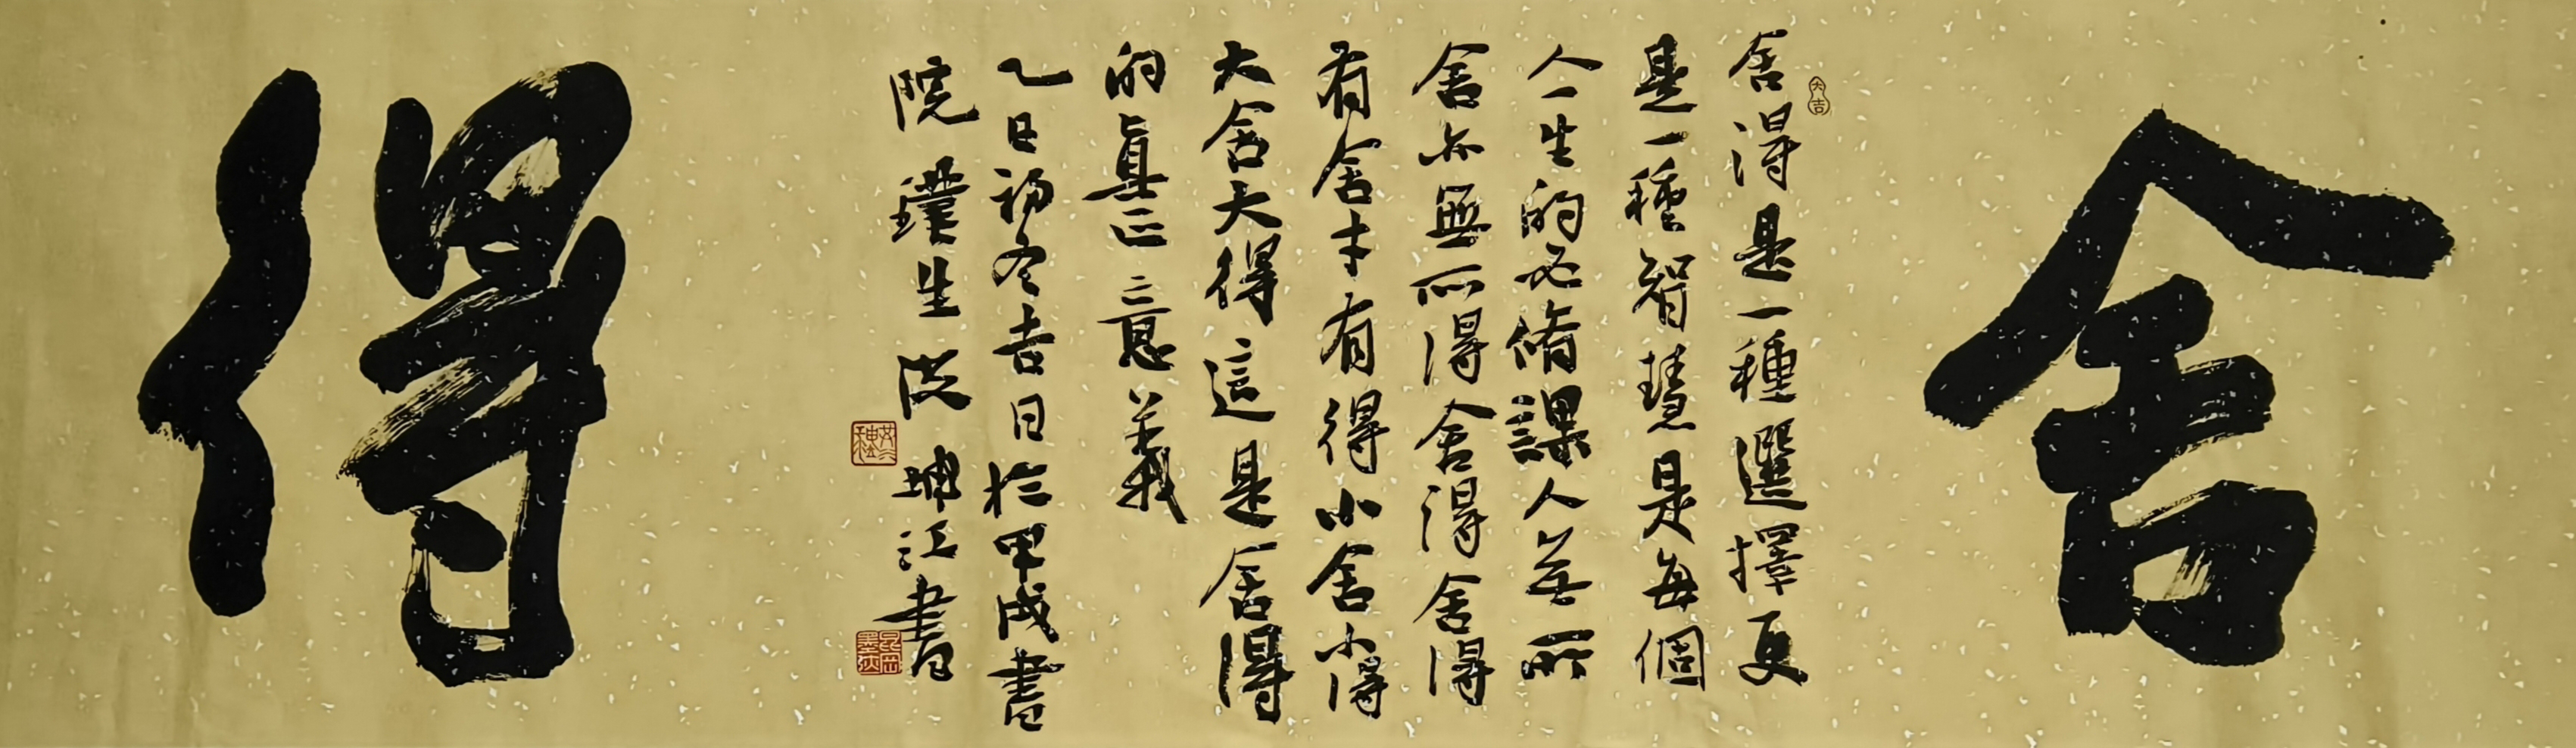 舍
大吉
舍得是一種選擇更
是一種智慧是每個
人一生的必脩課人若無所
舍亦無所得舍得舍得
有舍才有得小舍小得
大舍大得這是舍得
的真正意義
乙巳初冬吉日於甲戌書
院璞生 洪坤江書
得